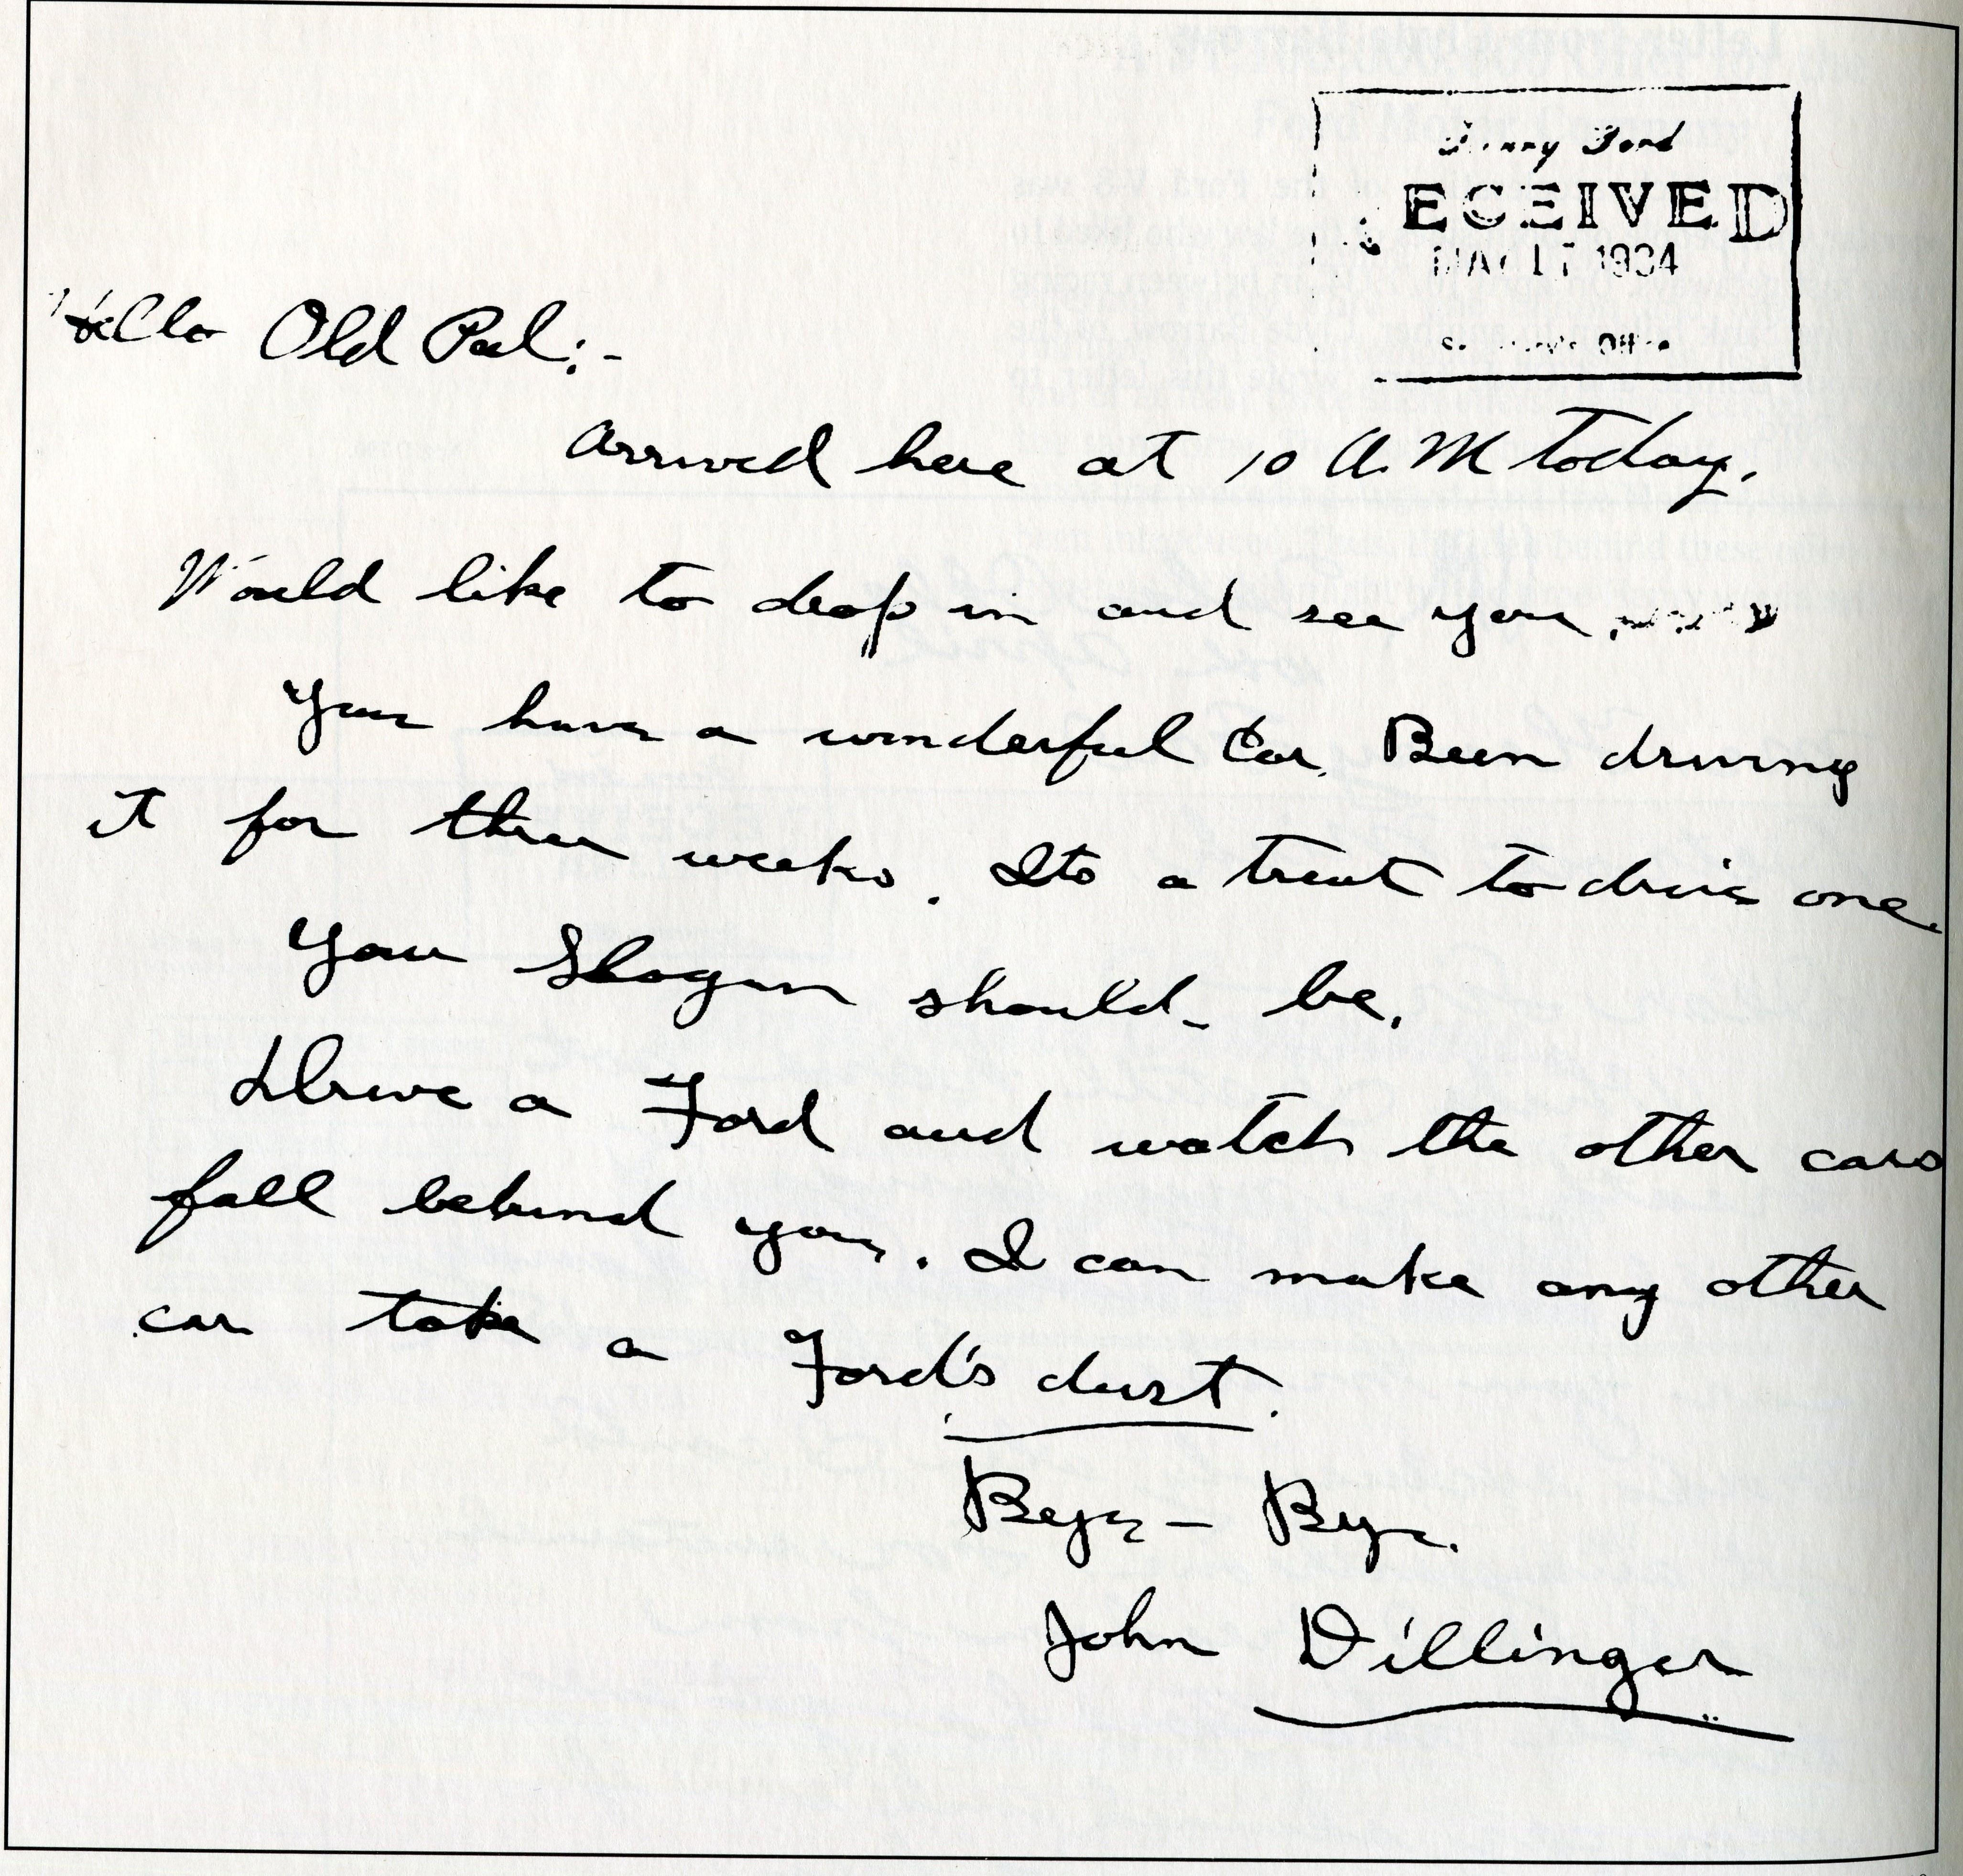 Henry Ford
RECEIVED
MAY 17 1934
Secretary's Office
Hello Old Pal:-
Arrived here at 10 A.M today.
Would like to drop in and see you
You have a wonderful Car. Been driving
it for three weeks. Its a treat to drive one.
Your Slogan should- be.
Drive a Ford and watch the other cars
fall behind you. I can make any other
car take a Ford's dust.
Bye - Bye.
John Dillinger